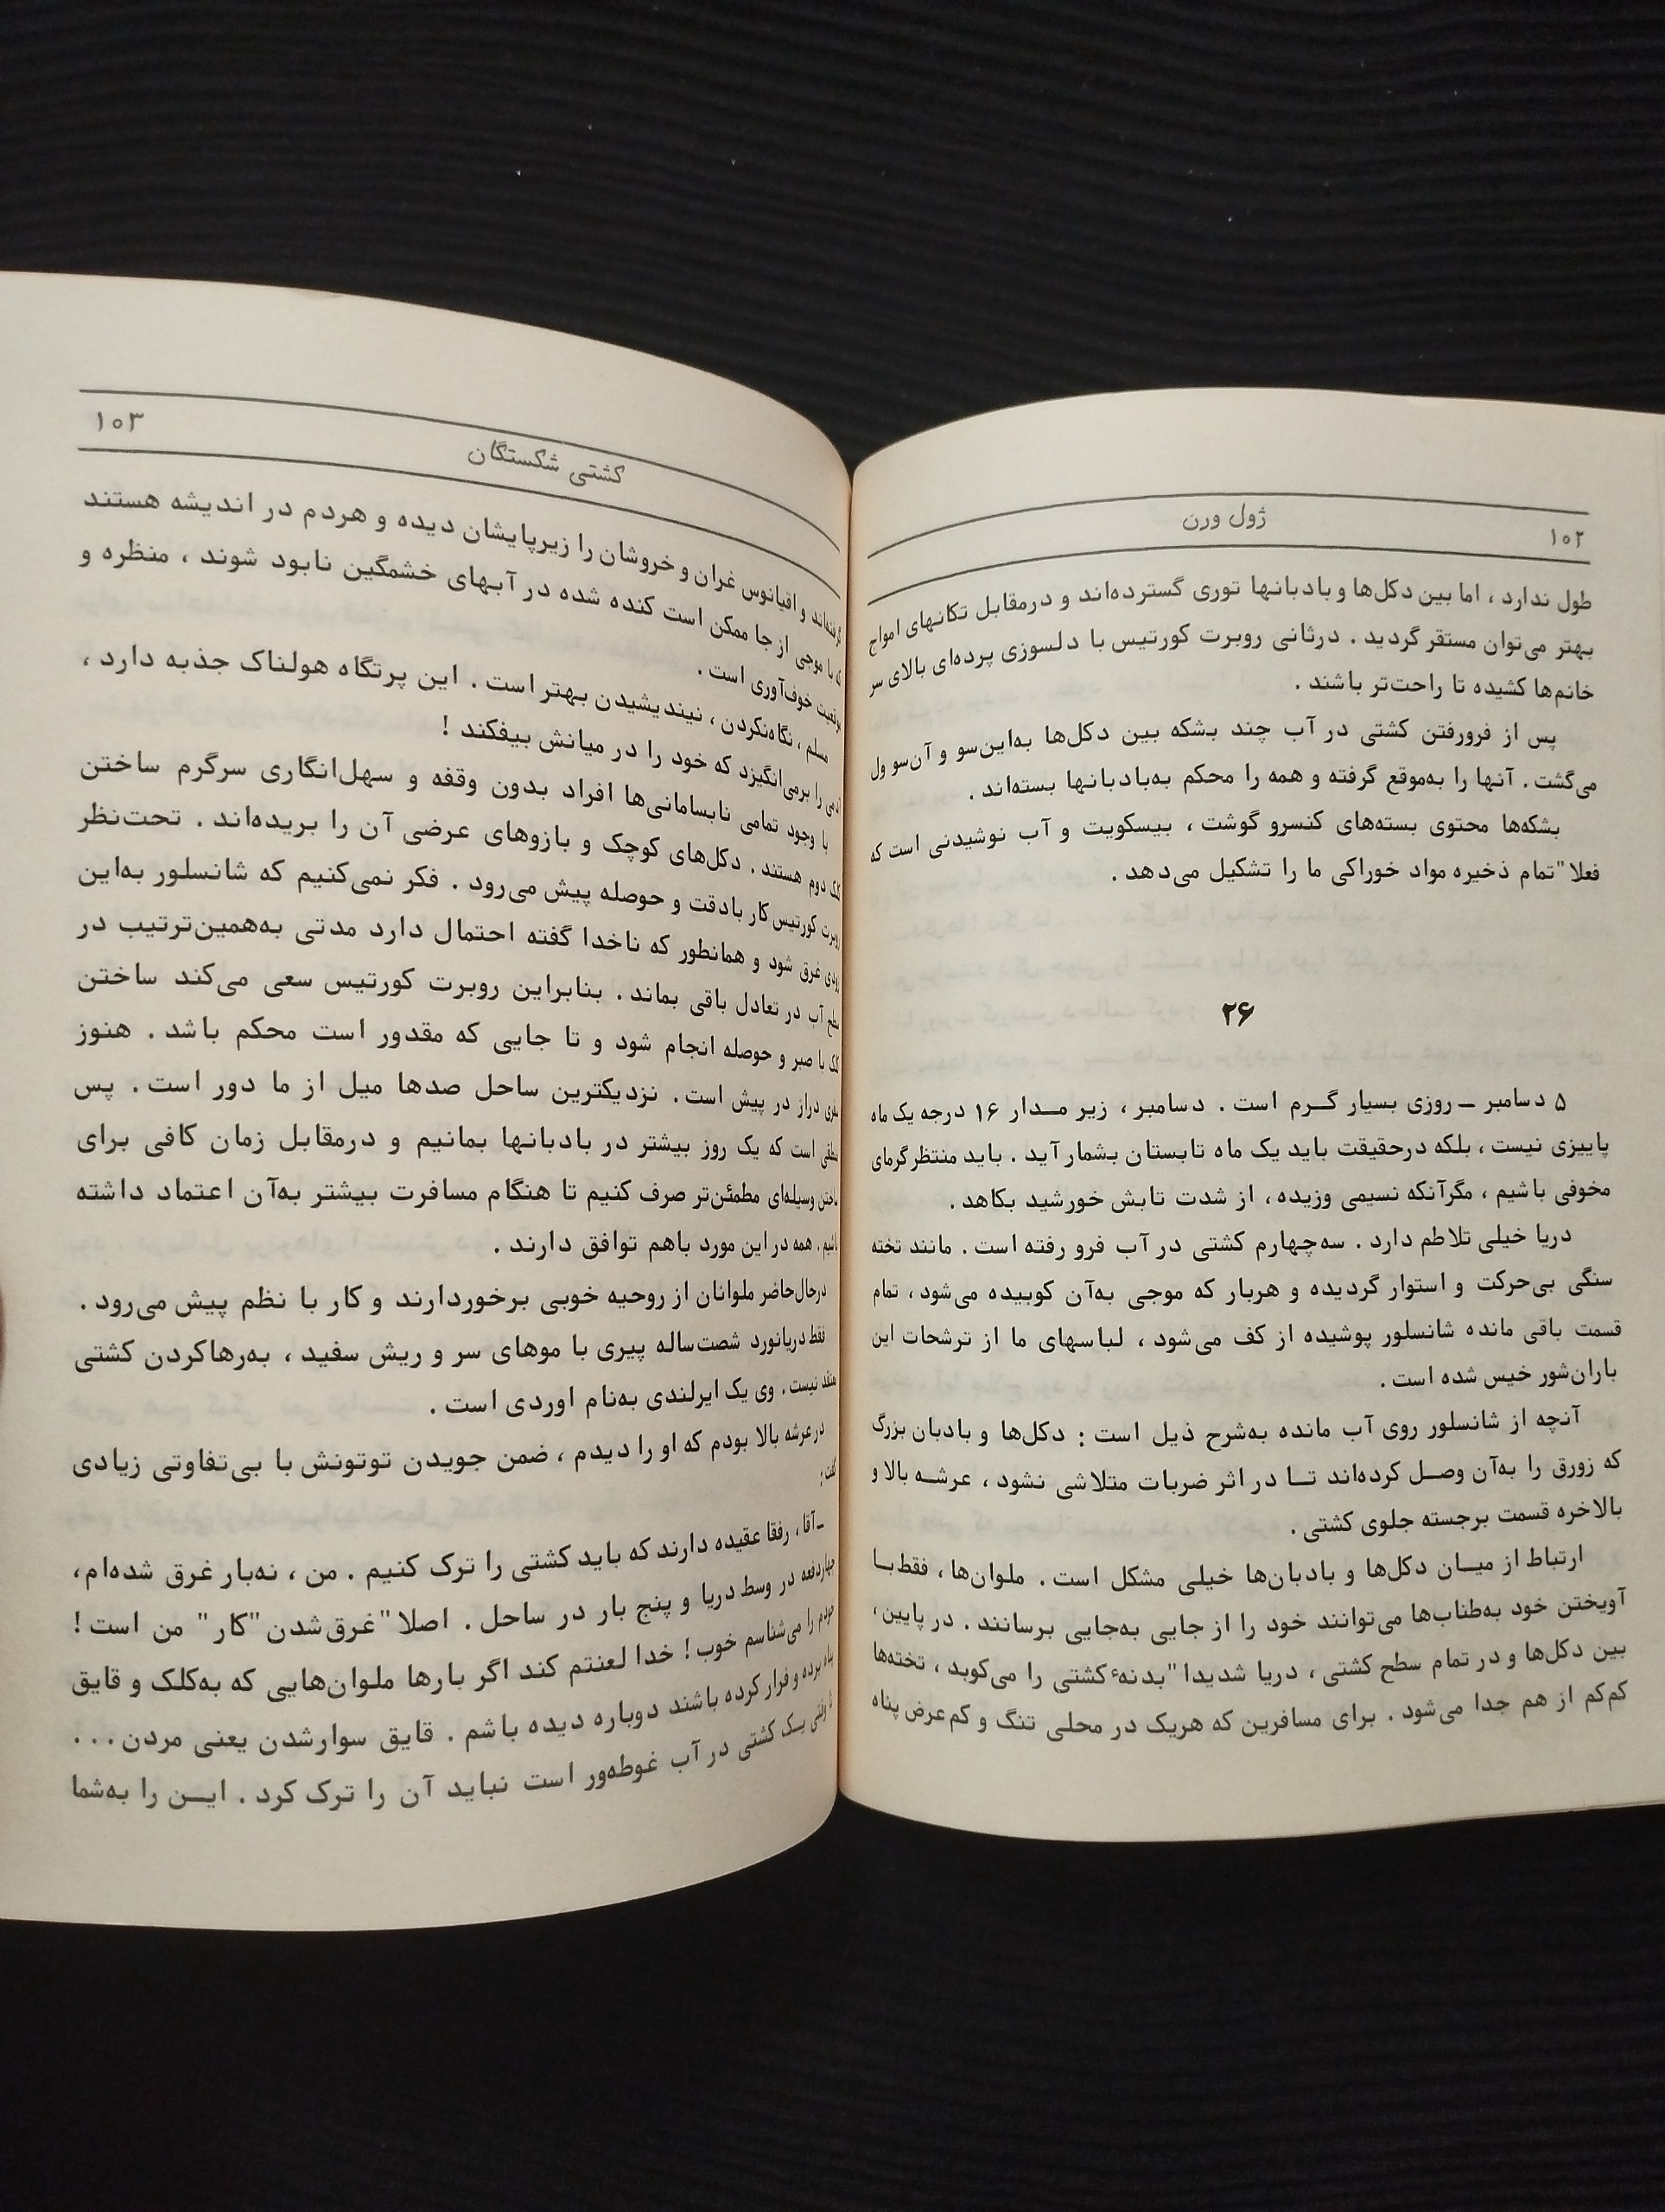 ۱۰۲
ژول ورن
طول ندارد ، اما بین دکل‌ها و بادبانها توری گسترده‌اند و درمقابل تکانهای امواج
بهتر می‌توان مستقر گردید . درثانی روبرت کورتیس با دلسوزی پرده‌ای بالای سر
خانم‌ها کشیده تا راحت‌تر باشند .
پس از فرورفتن کشتی در آب چند بشکه بین دکل‌ها به‌این‌سو و آن‌سو ول
می‌گشت . آنها را به‌موقع گرفته و همه را محکم به‌بادبانها بسته‌اند .
بشکه‌ها محتوی بسته‌های کنسرو گوشت ، بیسکویت و آب نوشیدنی است که
فعلا" تمام ذخیره مواد خوراکی ما را تشکیل می‌دهد .
۲۶
۵ دسامبر ــ روزی بسیار گــرم است . دسامبر ، زیر مــدار ۱۶ درجه یک ماه
پاییزی نیست ، بلکه درحقیقت باید یک ماه تابستان بشمار آید . باید منتظر گرمای
مخوفی باشیم ، مگرآنکه نسیمی وزیده ، از شدت تابش خورشید بکاهد .
دریا خیلی تلاطم دارد . سه‌چهارم کشتی در آب فرو رفته است . مانند تخته
سنگی بی‌حرکت و استوار گردیده و هربار که موجی به‌آن کوبیده می‌شود ، تمام
قسمت باقی مانده شانسلور پوشیده از کف می‌شود ، لباسهای ما از ترشحات این
باران‌شور خیس شده است .
آنچه از شانسلور روی آب مانده به‌شرح ذیل است : دکل‌ها و بادبان بزرگ
که زورق را به‌آن وصــل کرده‌اند تــا در اثر ضربات متلاشی نشود ، عرشــه بالا و
بالاخره قسمت برجسته جلوی کشتی .
ارتباط از میــان دکل‌ها و بادبان‌ها خیلی مشکل است . ملوان‌ها ، فقط بــا
آویختن خود به‌طناب‌ها می‌توانند خود را از جایی به‌جایی برسانند . در پایین ،
بین دکل‌ها و در تمام سطح کشتی ، دریا شدیدا" بدنهٔ کشتی را می‌کوبد ، تخته‌ها
کم‌کم از هم جدا می‌شود . برای مسافرین که هریک در محلی تنگ و کم‌عرض پناه
۱۰۳
کشتی شکستگان
گرفته‌اند و اقیانوس غران و خروشان را زیرپایشان دیده و هردم در اندیشه هستند
که با موجی از جا ممکن است کنده شده در آبهای خشمگین نابود شوند ، منظره و
موقعیت خوف‌آوری است .
مسلم ، نگاه‌نکردن ، نیندیشیدن بهتر است . این پرتگاه هولناک جذبه دارد ،
آدمی را برمی‌انگیزد که خود را در میانش بیفکند !
با وجود تمامی نابسامانی‌ها افراد بدون وقفه و سهل‌انگاری سرگرم ساختن
کلک دوم هستند . دکل‌های کوچک و بازوهای عرضی آن را بریده‌اند . تحت‌نظر
روبرت کورتیس کار بادقت و حوصله پیش می‌رود . فکر نمی‌کنیم که شانسلور به‌این
زودی غرق شود و همانطور که ناخدا گفته احتمال دارد مدتی به‌همین‌ترتیب در
سطح آب در تعادل باقی بماند . بنابراین روبرت کورتیس سعی می‌کند ساختن
کلک با صبر و حوصله انجام شود و تا جایی که مقدور است محکم باشد . هنوز
سفری دراز در پیش است . نزدیکترین ساحل صدها میل از ما دور است . پس
منطقی است که یک روز بیشتر در بادبانها بمانیم و درمقابل زمان کافی برای
ساختن وسیله‌ای مطمئن‌تر صرف کنیم تا هنگام مسافرت بیشتر به‌آن اعتماد داشته
باشیم . همه در این مورد باهم توافق دارند .
درحال‌حاضر ملوانان از روحیه خوبی برخوردارند و کار با نظم پیش می‌رود .
فقط دریانورد شصت‌ساله پیری با موهای سر و ریش سفید ، به‌رهاکردن کشتی
معتقد نیست . وی یک ایرلندی به‌نام اوردی است .
در عرشه بالا بودم که او را دیدم ، ضمن جویدن توتونش با بی‌تفاوتی زیادی
گفت :
ــ آقا ، رفقا عقیده دارند که باید کشتی را ترک کنیم . من ، نه‌بار غرق شده‌ام ،
چهاردفعه در وسط دریا و پنج بار در ساحل . اصلا" غرق‌شدن "کار" من است !
خودم را می‌شناسم خوب ! خدا لعنتم کند اگر بارها ملوان‌هایی که به‌کلک و قایق
پناه برده و فرار کرده باشند دوباره دیده باشم . قایق سوارشدن یعنی مردن . . .
تا وقتی یــک کشتی در آب غوطه‌ور است نباید آن را ترک کرد . ایــن را به‌شما